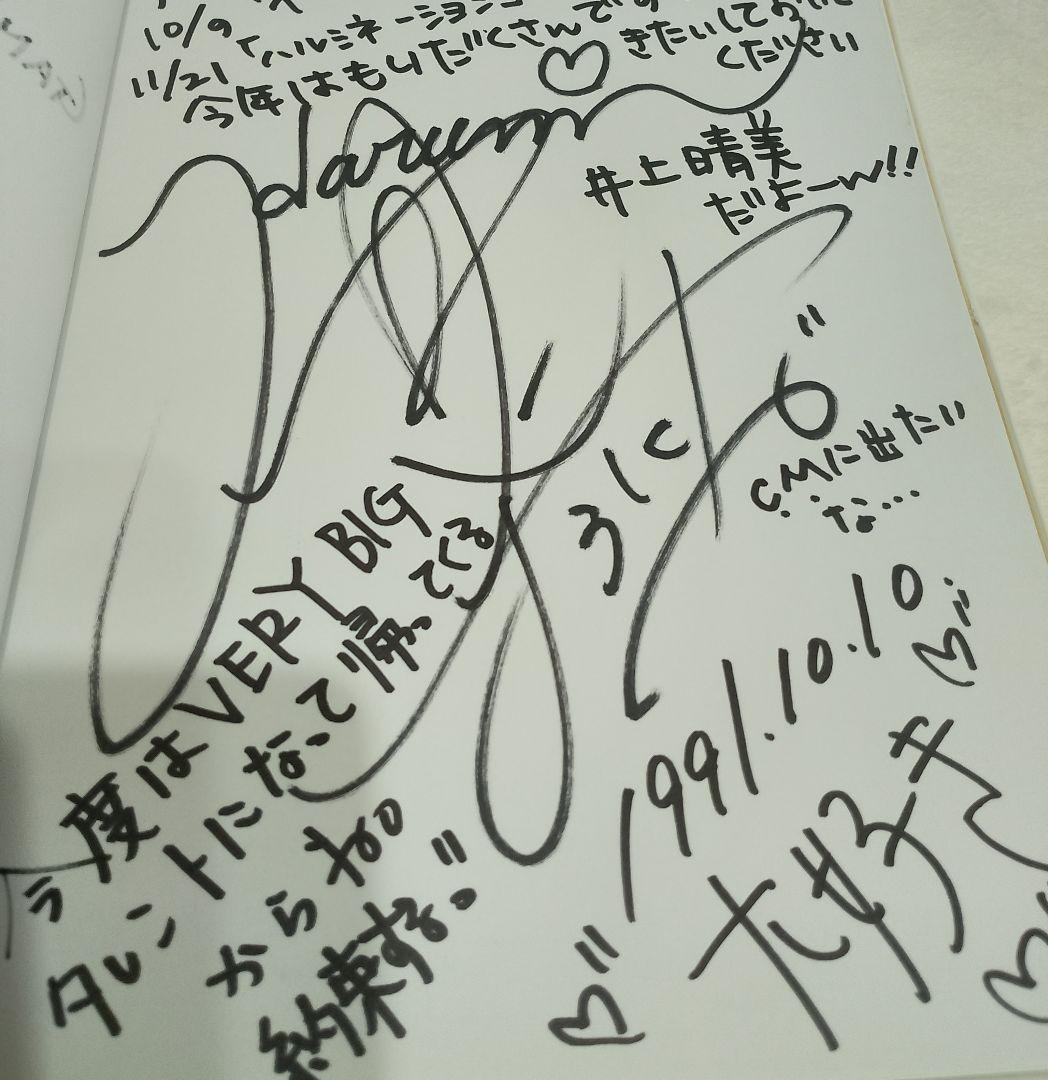 10/9
11/21 ハルシネーション
今年はもりだくさんです♡ きたいしておいて
ください
Harumi
井上晴美
だよーん!!
C.M.に出たい
な…
度はVERY BIG
タレントになって帰ってくる
からね。
約束する。"
1991.10.10
大好き♡